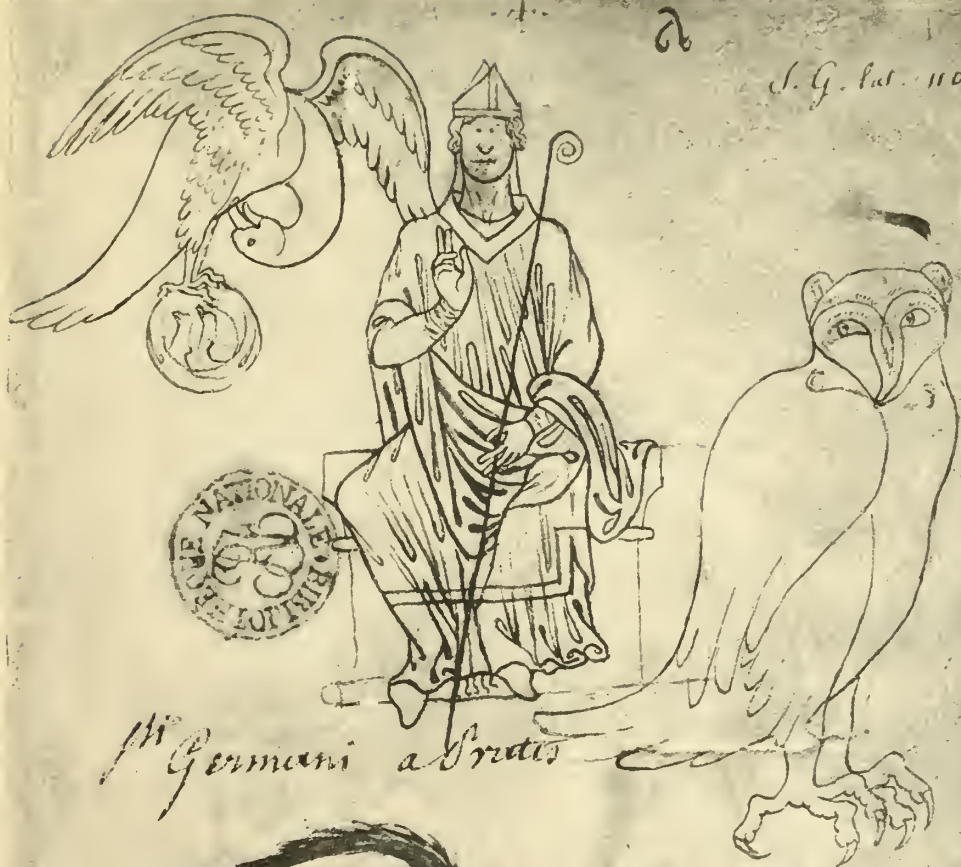 a
S. G. lat. 110
BIBLIOTHEQUE NATIONALE
Sti Germani a Pratis